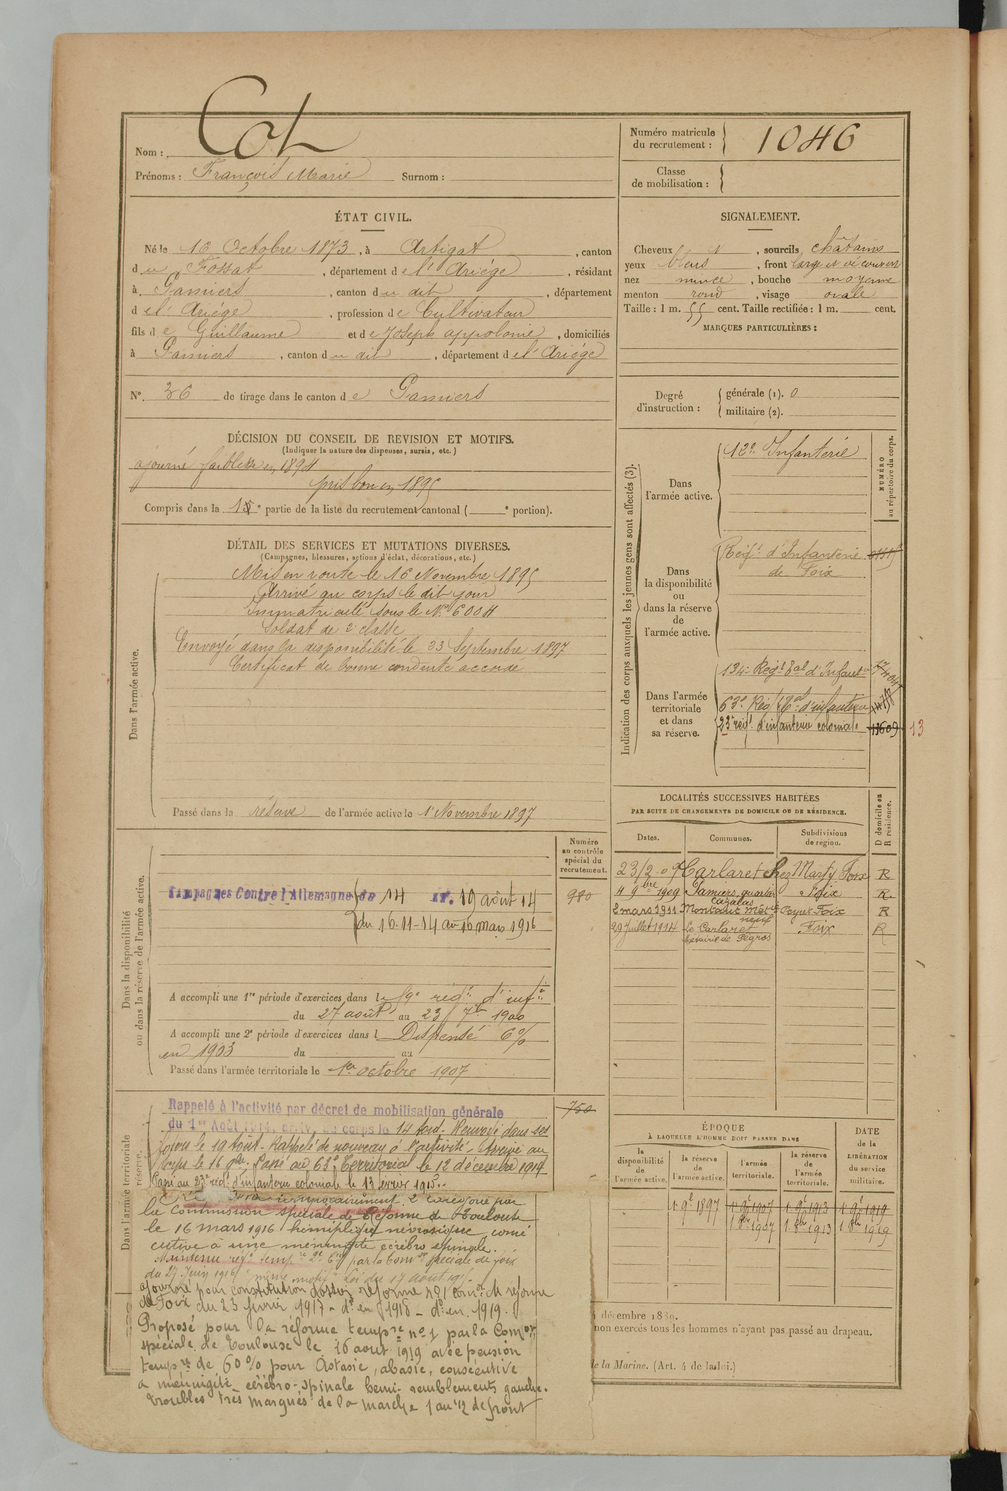 Nom : Cot
Prénoms : François Marie Surnom :
Numéro matricule du recrutement : 1046
Classe de mobilisation :
ÉTAT CIVIL.
Né le 16 Octobre 1873, à Artigat, canton
du Fossat, département de l'Ariège, résidant
à Pamiers, canton du dit, département
de l'Ariège, profession de Cultivateur
fils de Guillaume et de Joseph appolonie, domiciliés
à Pamiers, canton du dit, département de l'Ariège
N°. 36 de tirage dans le canton de Pamiers
SIGNALEMENT.
Cheveux et, sourcils châtains
yeux bleus, front large et découvert
nez mince, bouche moyenne
menton rond, visage ovale
Taille : 1 m. 55 cent. Taille rectifiée : 1 m. cent.
MARQUES PARTICULIÈRES :
Degré d'instruction : générale (1). 0
militaire (2).
DÉCISION DU CONSEIL DE REVISION ET MOTIFS.
(Indiquer la nature des dispenses, sursis, etc.)
ajourné faiblesse en 1894
pris bon en 1895
Compris dans la 1e partie de la liste du recrutement cantonal ( e portion).
DÉTAIL DES SERVICES ET MUTATIONS DIVERSES.
(Campagnes, blessures, actions d'éclat, décorations, etc.)
Dans l'armée active.
Mis en route le 16 Novembre 1895
Arrivé au corps le dit jour
Immatriculé sous le N° 6004
Soldat de 2e classe
Envoyé dans la disponibilité le 23 Septembre 1897
Certificat de bonne conduite accordé
Passé dans la réserve de l'armée active le 1er Novembre 1897
Indication des corps auxquels les jeunes gens sont affectés (3).
NUMÉRO au répertoire du corps.
Dans l'armée active. 12e Infanterie
Dans la disponibilité ou dans la réserve de l'armée active. Régt d'Infanterie de Foix
Dans l'armée territoriale et dans sa réserve. 134e Régt Eal d'Infanterie
63e Rég Tal d'infanterie
23e régt d'infanterie coloniale 13609 13
LOCALITÉS SUCCESSIVES HABITÉES
PAR SUITE DE CHANGEMENTS DE DOMICILE OU DE RÉSIDENCE.
Dates. Communes. Subdivisions de région. D domicile ou R résidence.
23/2 09 Carlaret chez Marty Foix R
4 9bre 1909 Pamiers, quartier Cazalas Foix R
2 mars 1911 Montaut Foix R
29 Juillet 1914 Le Carlaret Métairie de Foix R
Dans la disponibilité ou dans la réserve de l'armée active.
Numéro au contrôle spécial du recrutement.
980
Campagnes Contre l'Allemagne de 14 au 19 août 14
du 16-11-14 au 16 mars 1916
A accompli une 1re période d'exercices dans le 59e régt d'infie
du 27 août au 23 7bre 1900
A accompli une 2e période d'exercices dans l Dispensé 6%
en 1903 du au
Passé dans l'armée territoriale le 1er octobre 1907
Dans l'armée territoriale
réserve.
750
Rappelé à l'activité par décret de mobilisation générale
du 1er Août 1914, arrivé au corps le 14 août. Renvoyé dans ses
foyers le 19 Août. Rappelé de nouveau à l'activité. Arrivé au
corps le 16 9bre. Passé au 63e Territorial le 12 décembre 1914
Passé au 23e régt d'infanterie coloniale le 13 février 1915.
la Commission spéciale de Réforme de Toulouse
le 16 mars 1916, hémiplégie névrosique consé
cutive à une méningite cérébro spinale.
Maintenu réf. tempre 2e par la Comon spéciale de Foix
du 27 Juin 1916
ajourné pour constitution dossier réforme n° 1 comon de réforme
de Foix du 23 février 1917 - do en 1918 - do en 1919.
Proposé pour la réforme tempre n° 1 par la Comon
spéciale de Toulouse le 16 août 1919 avec pension
tempre de 60 % pour Astasie, abasie, consécutive
à méningite cérébro-spinale hemi-tremblements gauche.
troubles très marqués de la marche 1 an 1/2 de front
ÉPOQUE
À LAQUELLE L'HOMME DOIT PASSER DANS
DATE de la LIBÉRATION du service militaire.
la disponibilité de l'armée active. la réserve de l'armée active. l'armée territoriale. la réserve de l'armée territoriale.
1 9e 1897 1 9e 1907 1 9e 1913 1 9e 1919
1 8bre 1907 1 8bre 1913 1 8bre 1919
décembre 1880.
non exercés tous les hommes n'ayant pas passé au drapeau.
de la Marine. (Art. 4 de la loi.)